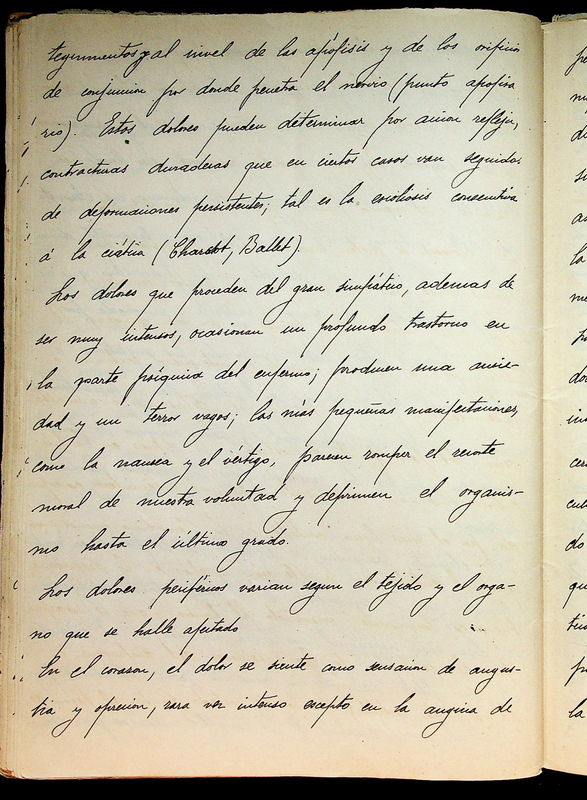 tegumentos y al nivel de las apófisis y de los orificios
de conjuncion por donde penetra el nervio (punto apofisa
rio). Estos dolores pueden determinar por acion refleja,
contracturas duraderas que en ciertos casos van seguidas
de deformaciones persistentes; tal es la escoliosis consecutiva
á la ciática (Charcot, Ballet).
Los dolores que proceden del gran simpático, ademas de
ser muy intensos, ocasionan un profundo trastorno en
la parte psiquica del enfermo; producen una ansie-
dad y un terror vagos; las más pequeñas manifestaciones,
como la nausea y el vértigo, parecen romper el resorte
moral de nuestra voluntad y deprimen el organis-
mo hasta el último grado.
Los dolores periféricos varian segun el tejido y el orga-
no que se halle afectado
En el corazon, el dolor se siente como sensacion de angus-
tia y opresion, rara vez intenso excepto en la angina de